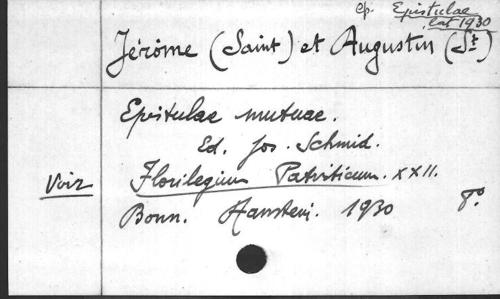 cf. Epistulae
lat 1930
Jérôme (Saint) et Augustin (St)
Epistulae mutuae.
Ed. Jos. Schmid.
Voir Florilegium Patristicum. XXII.
Bonn. Hanstein. 1930 8°